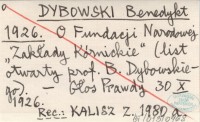 DYBOWSKI Benedykt
1926. O Fundacji Narodowej
"Zakłady Kórnickie" (list
otwarty prof. B. Dybowskie-
go). — Głos Prawdy 30 X
1926.
Rec.: KALISZ Z. 1980 a.